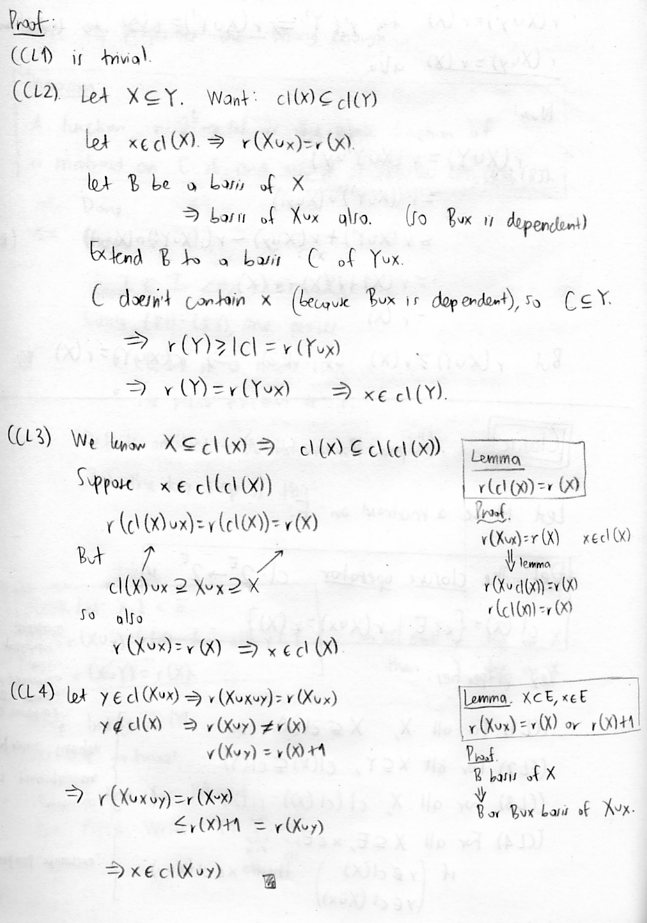 Proof:
(CL1) is trivial.
(CL2). Let X ⊆ Y. Want: cl(X) ⊆ cl(Y)
Let x ∈ cl(X). ⇒ r(X∪x)=r(X).
Let B be a basis of X
⇒ basis of X∪x also. (so B∪x is dependent)
Extend B to a basis C of Y∪x.
C doesn't contain x (because B∪x is dependent), so C⊆Y.
⇒ r(Y) ⩾ |C| = r(Y∪x)
⇒ r(Y) = r(Y∪x) ⇒ x ∈ cl(Y).
(CL3) We know X ⊆ cl(X) ⇒ cl(X) ⊆ cl(cl(X))
Suppose x ∈ cl(cl(X))
r(cl(X)∪x)=r(cl(X))=r(X)
But
cl(X)∪x ⊇ X∪x ⊇ X
so also
r(X∪x) = r(X) ⇒ x ∈ cl(X).
Lemma
r(cl(X))=r(X)
Proof.
r(X∪x)=r(X) x∈cl(X)
⇓ lemma
r(X∪cl(X))=r(X)
r(cl(X))=r(X)
(CL4) Let y∈cl(X∪x) ⇒ r(X∪x∪y)=r(X∪x)
y∉cl(X) ⇒ r(X∪y) ≠ r(X)
r(X∪y) = r(X)+1
⇒ r(X∪x∪y)=r(X∪x)
≤ r(X)+1 = r(X∪y)
⇒ x∈cl(X∪y)
Lemma. X⊂E, x∈E
r(X∪x)=r(X) or r(X)+1
Proof.
B basis of X
⇓
B or B∪x basis of X∪x.